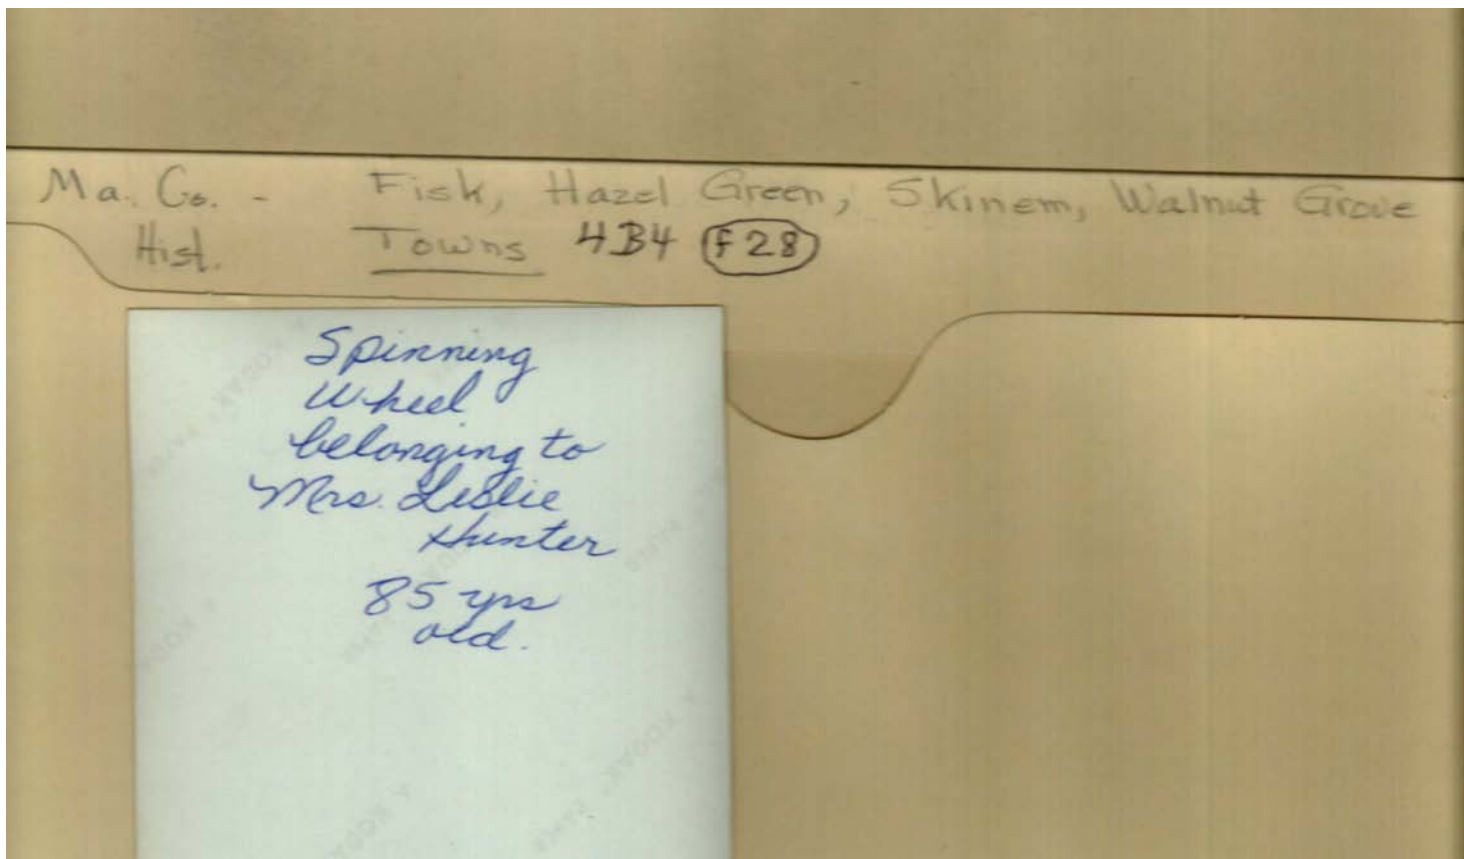 Ma. Co. - Fisk, Hazel Green, Skinem, Walnut Grove
Hist. Towns 4B4 F28
Spinning
Wheel
belonging to
Mrs. Leslie
Hunter
85 yrs
old.
KODAK
KODAK
KODAK